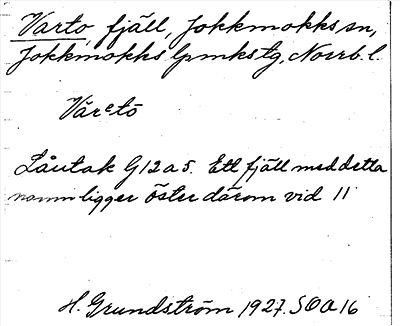 Varto, fjäll, Jokkmokks sn,
Jokkmokks lpmkstg, Norrb. l.
Vårᵉtō
Låutak G 12 a 5. Ett fjäll med detta
namn ligger öster därom vid 11
H. Grundström 1927. SOA 16